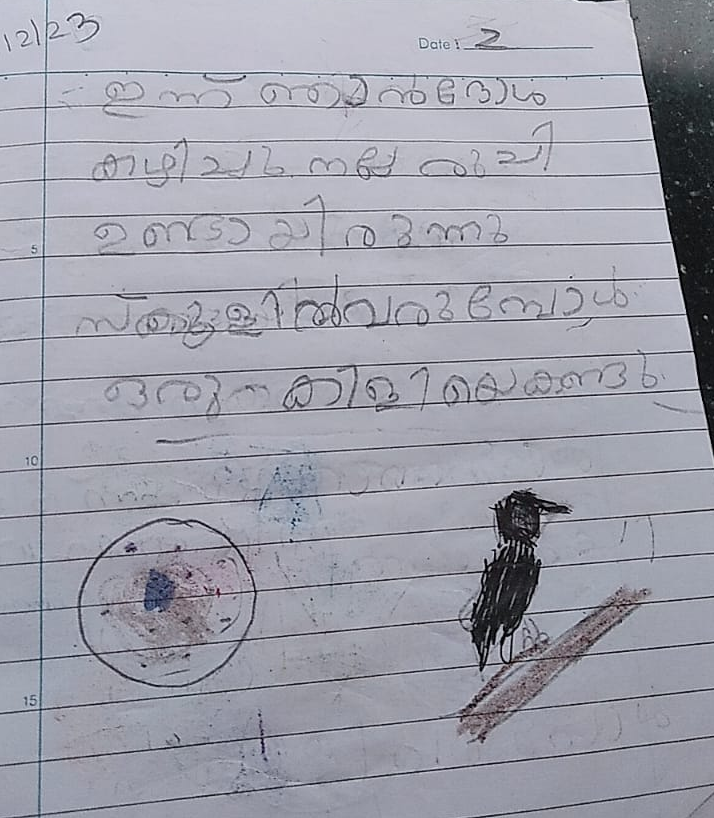 12/23
Date: 2
ഇന്ന് ഞാൻ ദോശ
കഴിച്ചു നല്ല രുചി
5
ഉണ്ടായിരുന്നു
സ്കൂളിൽ വരുമ്പോൾ
ഒരു കിളിയെ കണ്ടു.
10
15